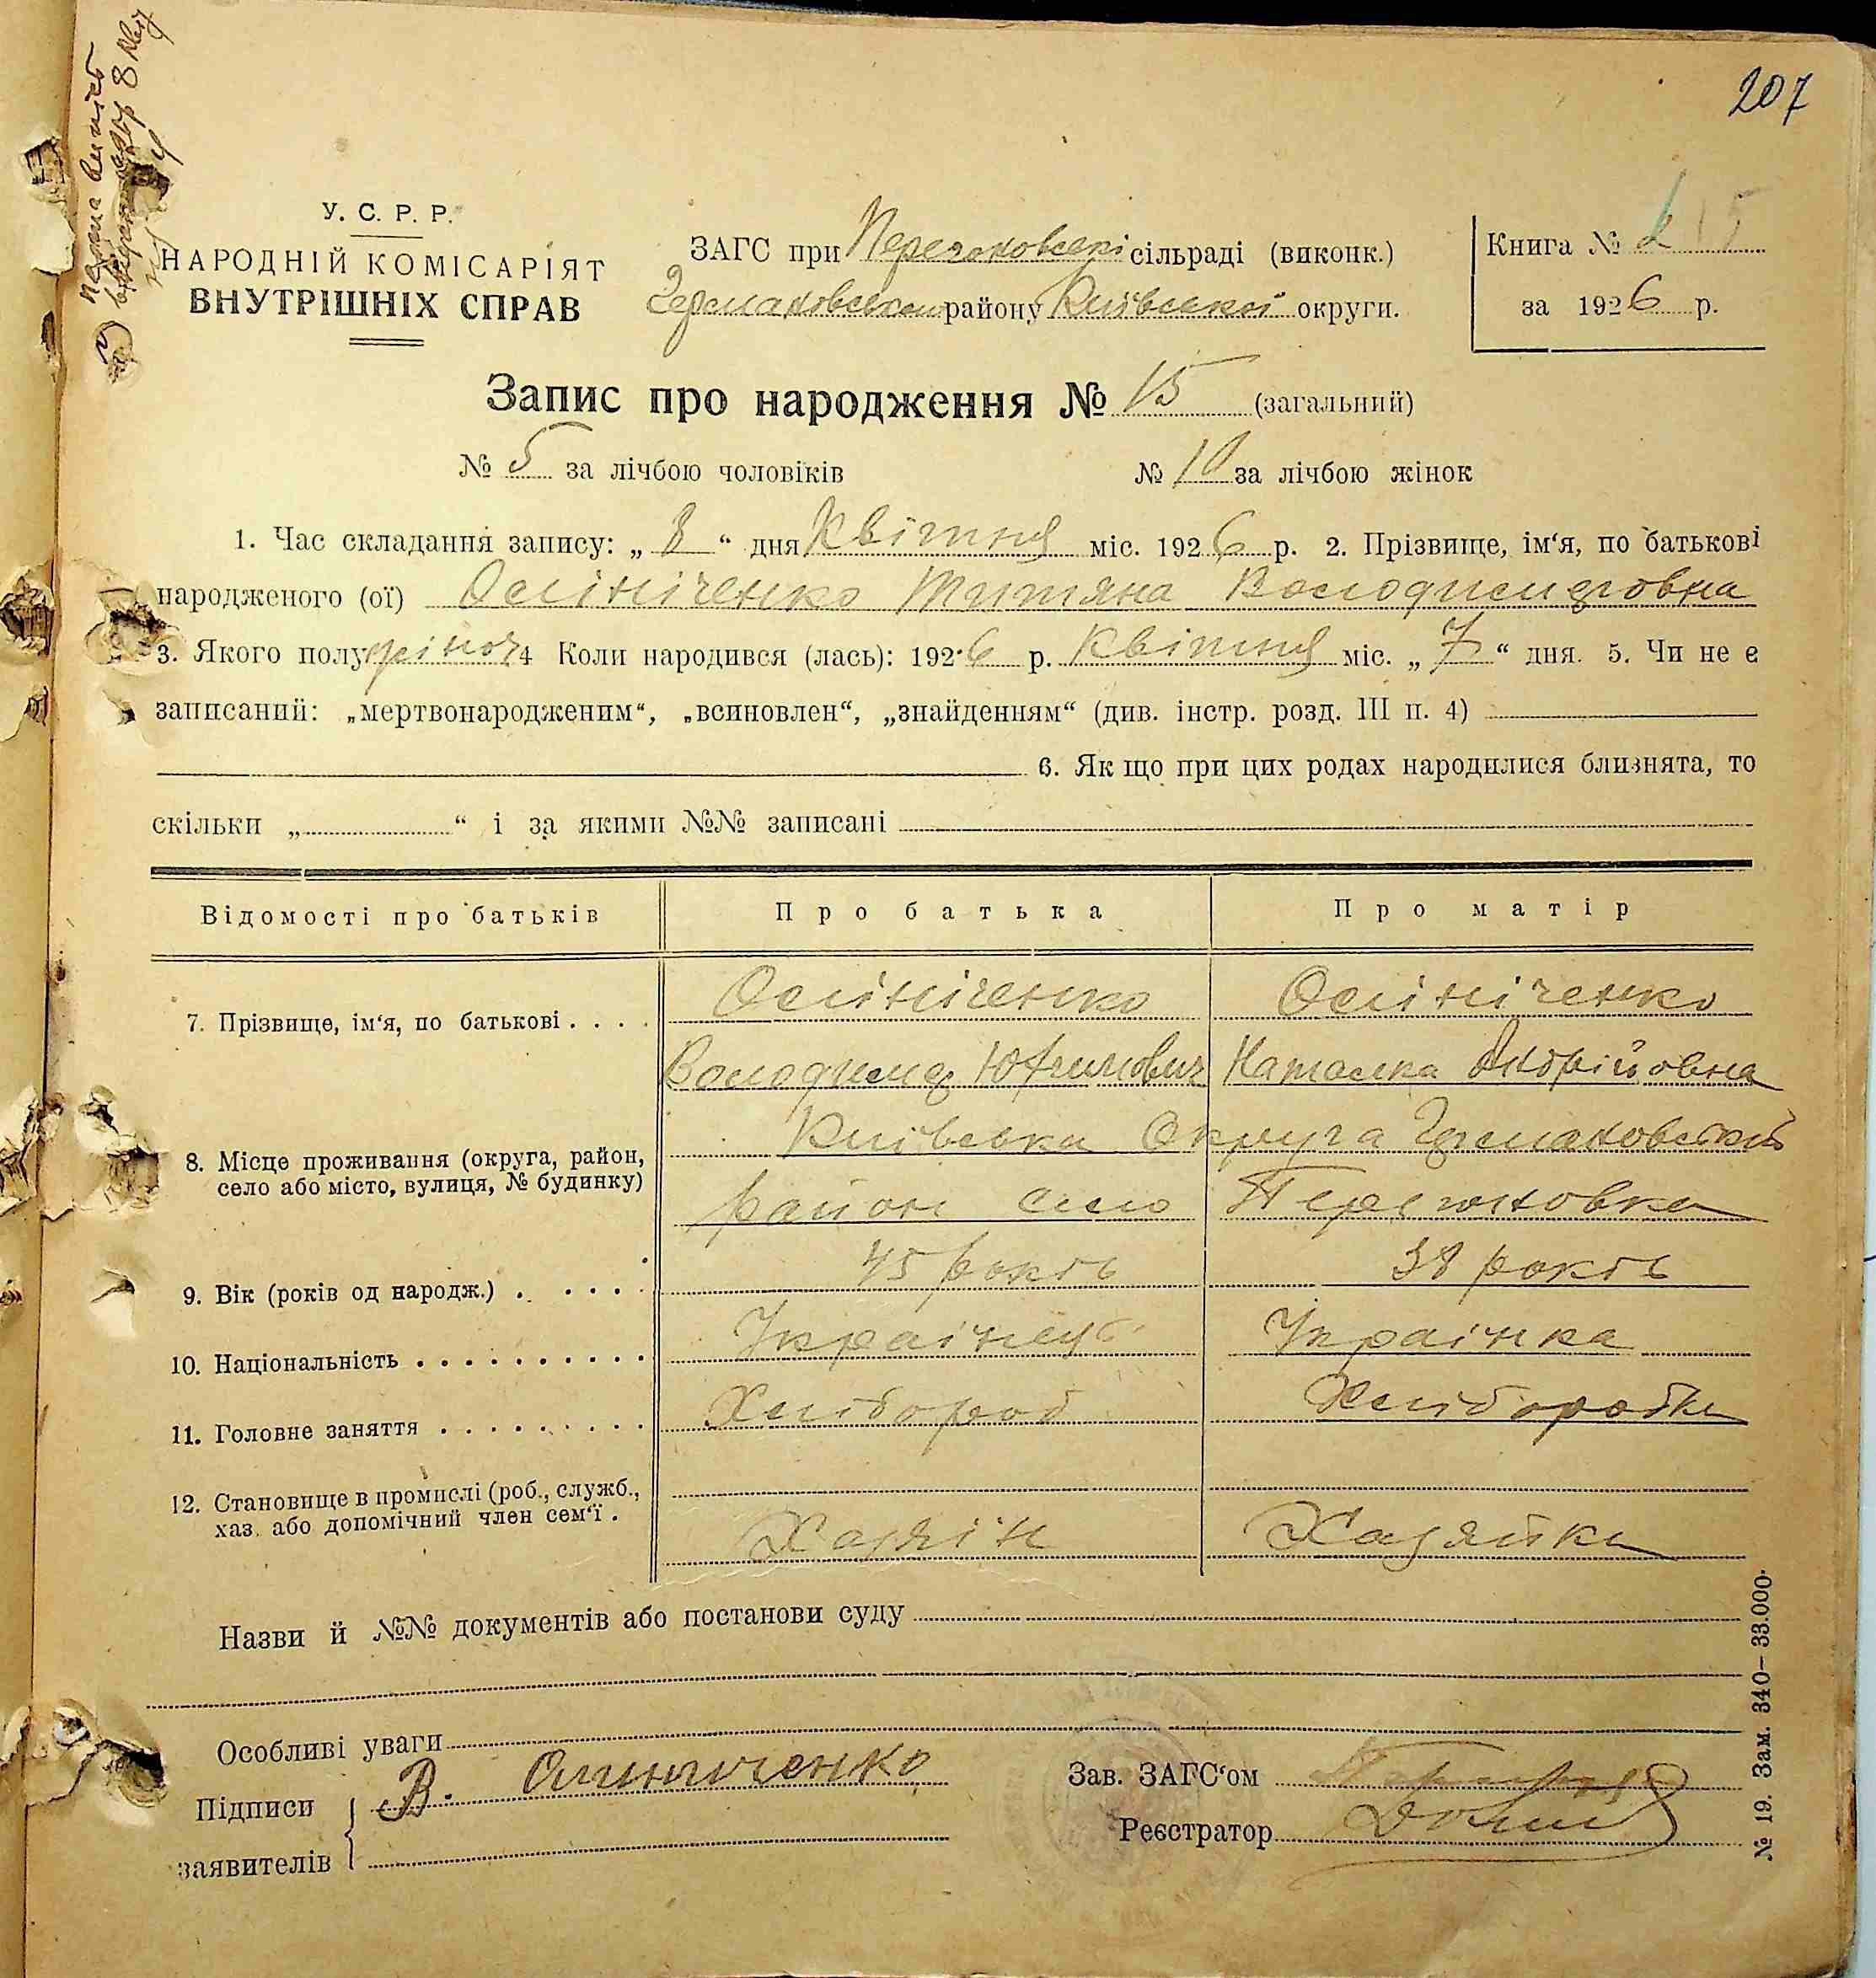 207
У. С. Р. Р.
НАРОДНІЙ КОМІСАРІЯТ
ВНУТРІШНІХ СПРАВ
ЗАГС при сільраді (виконк.)
району Київської округи.
Книга №
за 1926 р.
Запис про народження № 15 (загальний)
№ 5 за лічбою чоловіків № 10 за лічбою жінок
1. Час складання запису: „ 8 “ дня Квітня міс. 1926 р. 2. Прізвище, ім‘я, по батькові
народженого (ої) Олініченко Титяна Володимеровна
3. Якого полу жіноч 4 Коли народився (лась): 1926 р. Квітня міс. „ 7 “ дня. 5. Чи не є
записаний: „мертвонародженим“, „всиновлен“, „знайденням“ (див. інстр. розд. III п. 4)
6. Як що при цих родах народилися близнята, то
скільки „ “ і за якими №№ записані
Відомості про батьків Про батька Про матір
7. Прізвище, ім‘я, по батькові . . . . Олініченко Олініченко
Володимер Юхимович Наталка Андрійовна
8. Місце проживання (округа, район, село або місто, вулиця, № будинку) Київська Округа
район село
9. Вік (років од народж.) . . . . . 45 років 38 років
10. Національність . . . . . . . . . . Українець Українка
11. Головне заняття . . . . . . . . . Хлібороб Хліборобка
12. Становище в промислі (роб., служб., хаз. або допомічний член сем‘ї . Хазяін Хазяйка
Назви й №№ документів або постанови суду
Особливі уваги
Підписи заявителів В. Олиниченко
Зав. ЗАГС‘ом
Реєстратор
№ 19. Зам. 340–33.000.